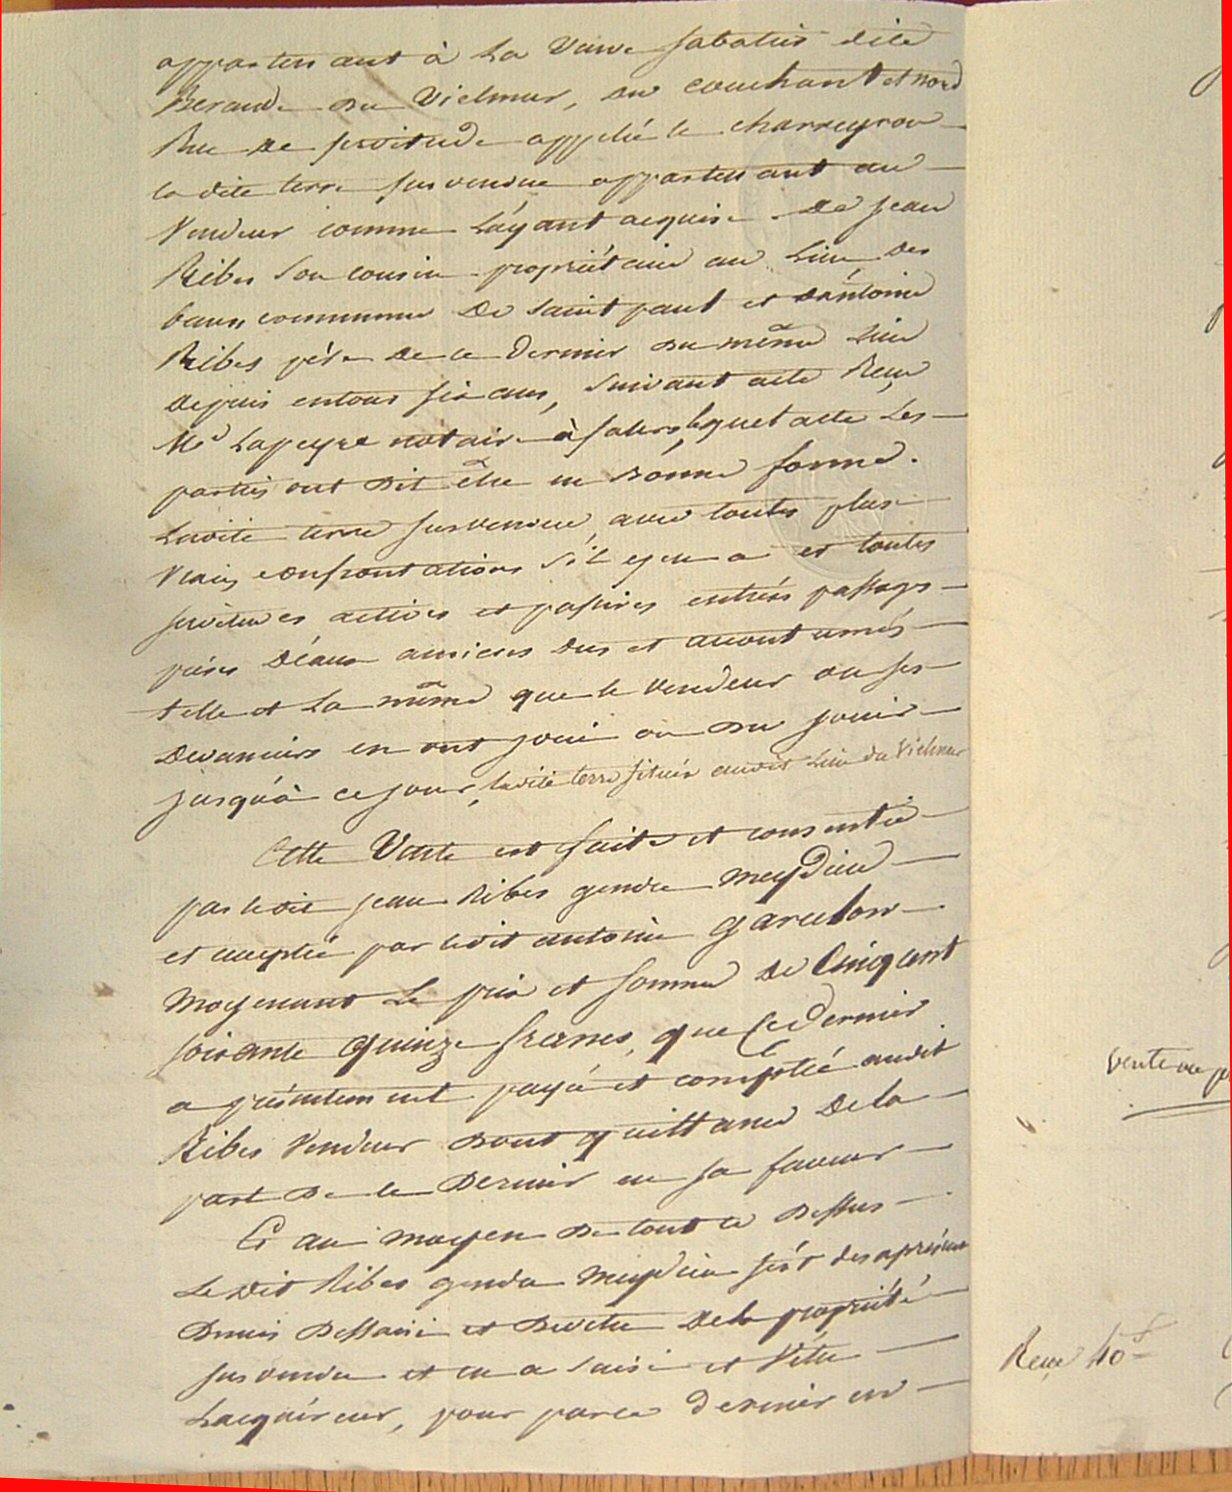 appartenant à La Veuve Sabatier dite
Beraude du Vielmur, du couchant et nord
Rue de servitude appelée le charreyrou
la dite terre susvendue appartenant au
Vendeur comme L'ayant acquise de Jean
Ribes son cousin propriétaire au Lieu des
commune De Saint paul et d'antoine
Ribes père de ce Dernier du même Lieu
depuis entour six ans, suivant acte Reçu
Me Lapeyre notaire à Salers, lequel acte Les
parties ont dit être en bonne forme.
Ladite terre susvendue, avec toutes plus
vraies confrontations s'il y en a et toutes
servitudes actives et passives entrées passages
prises d'eaux anciens dus et accoutumés
telle et La même que le vendeur ou ses
devanciers en ont joui ou du jouir
jusqu'à ce jour, ladite terre située audit Lieu du Vielmur
Cette Vente est faite et consentie
par ledit jean Ribes gendre meydieu
et acceptée par ledit antoine
moyenant Le prix et somme de Cinq cent
soixante quinze francs, que Ce dernier
a présentement payé et compté audit
Ribes Vendeur dont quittance de la
part de ce Dernier en sa faveur
Et au moyen de tout ce dessus
Le dit Ribes gendre meydieu s'est des a présent
Demis Dessaisi et Devetu de la propriété
susvendue et en a saisi et Vétu
L'acquéreur, pour par ce dernier en
Vente de
Reçu 40